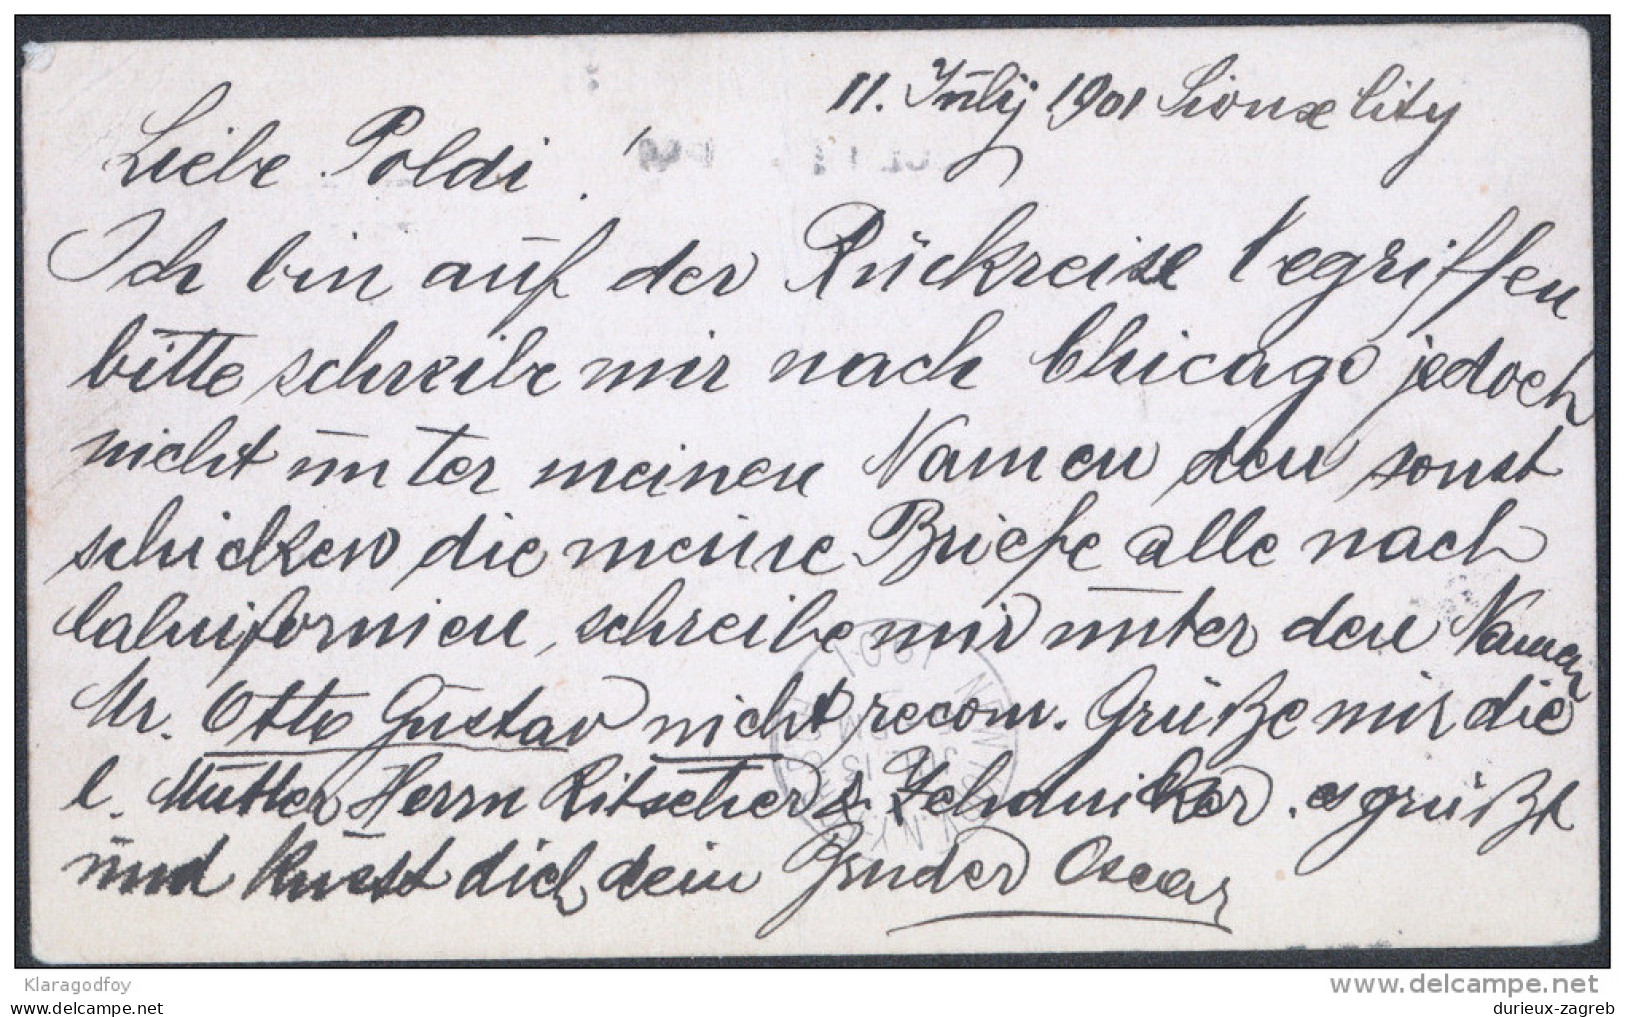 11. Jūly 1901 Sioux City
Liebe Poldi!
Ich bin auf der Rückreise begriffen
bitte schreibe mir nach Chicago jedoch
nicht unter meinen Namen den sonst
schicken die meine Briefe alle nach
Calnifornien, schreibe mir unter den Namen
Mr. Otto Gustav nicht recom. Grüße mir die
l. Mutter Herrn Ritscher & Zehduiker. es grüßt
und kusst dich dein Bruder Oscar
NEW YORK, N.Y.
1901
Klaragodfoy
delcampe.net
durieux-zagreb